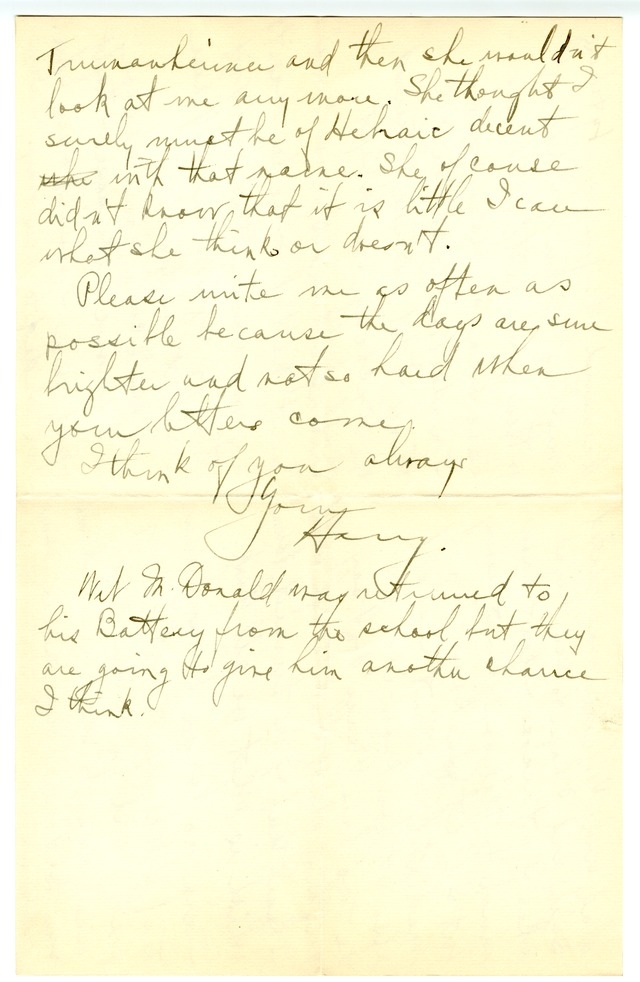 Trumanheimer and then she wouldn't
look at me any more. She thought I
surely must be of Hebraic decent
with that name. She of couse
didn't know that it is little I care
what she think or doesn't.
Please write me as often as
possible because the days are sure
brighter and not so hard when
your letters come.
I think of you always
Yours
Harry.
Wit McDonald was returned to
his Battery from the school but they
are going to give him another chance
I think.